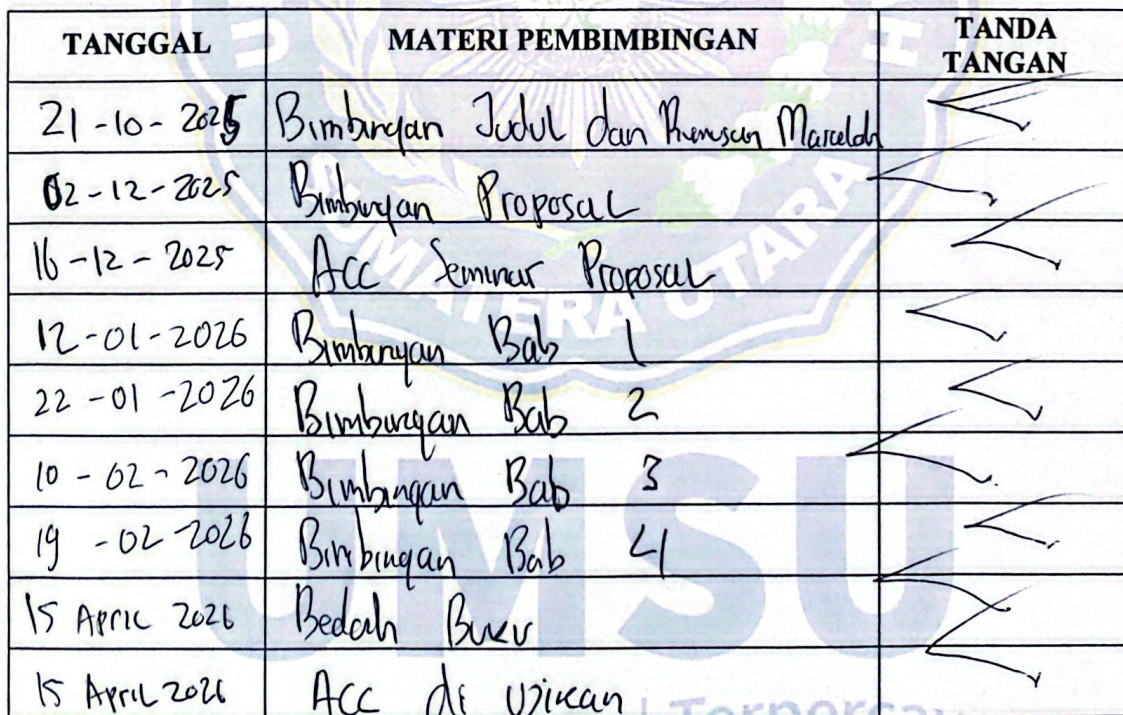 TANGGAL MATERI PEMBIMBINGAN TANDA TANGAN
21-10-2025 Bimbingan Judul dan
02-12-2025 Bimbingan Proposal
16-12-2025 Acc Seminar Proposal
12-01-2026 Bimbingan Bab 1
22-01-2026 Bimbingan Bab 2
10-02-2026 Bimbingan Bab 3
19-02-2026 Bimbingan Bab 4
15 April 2026 Bedah Buku
15 April 2026 Acc di ujikan
SUMATERA UTARA
UMSU